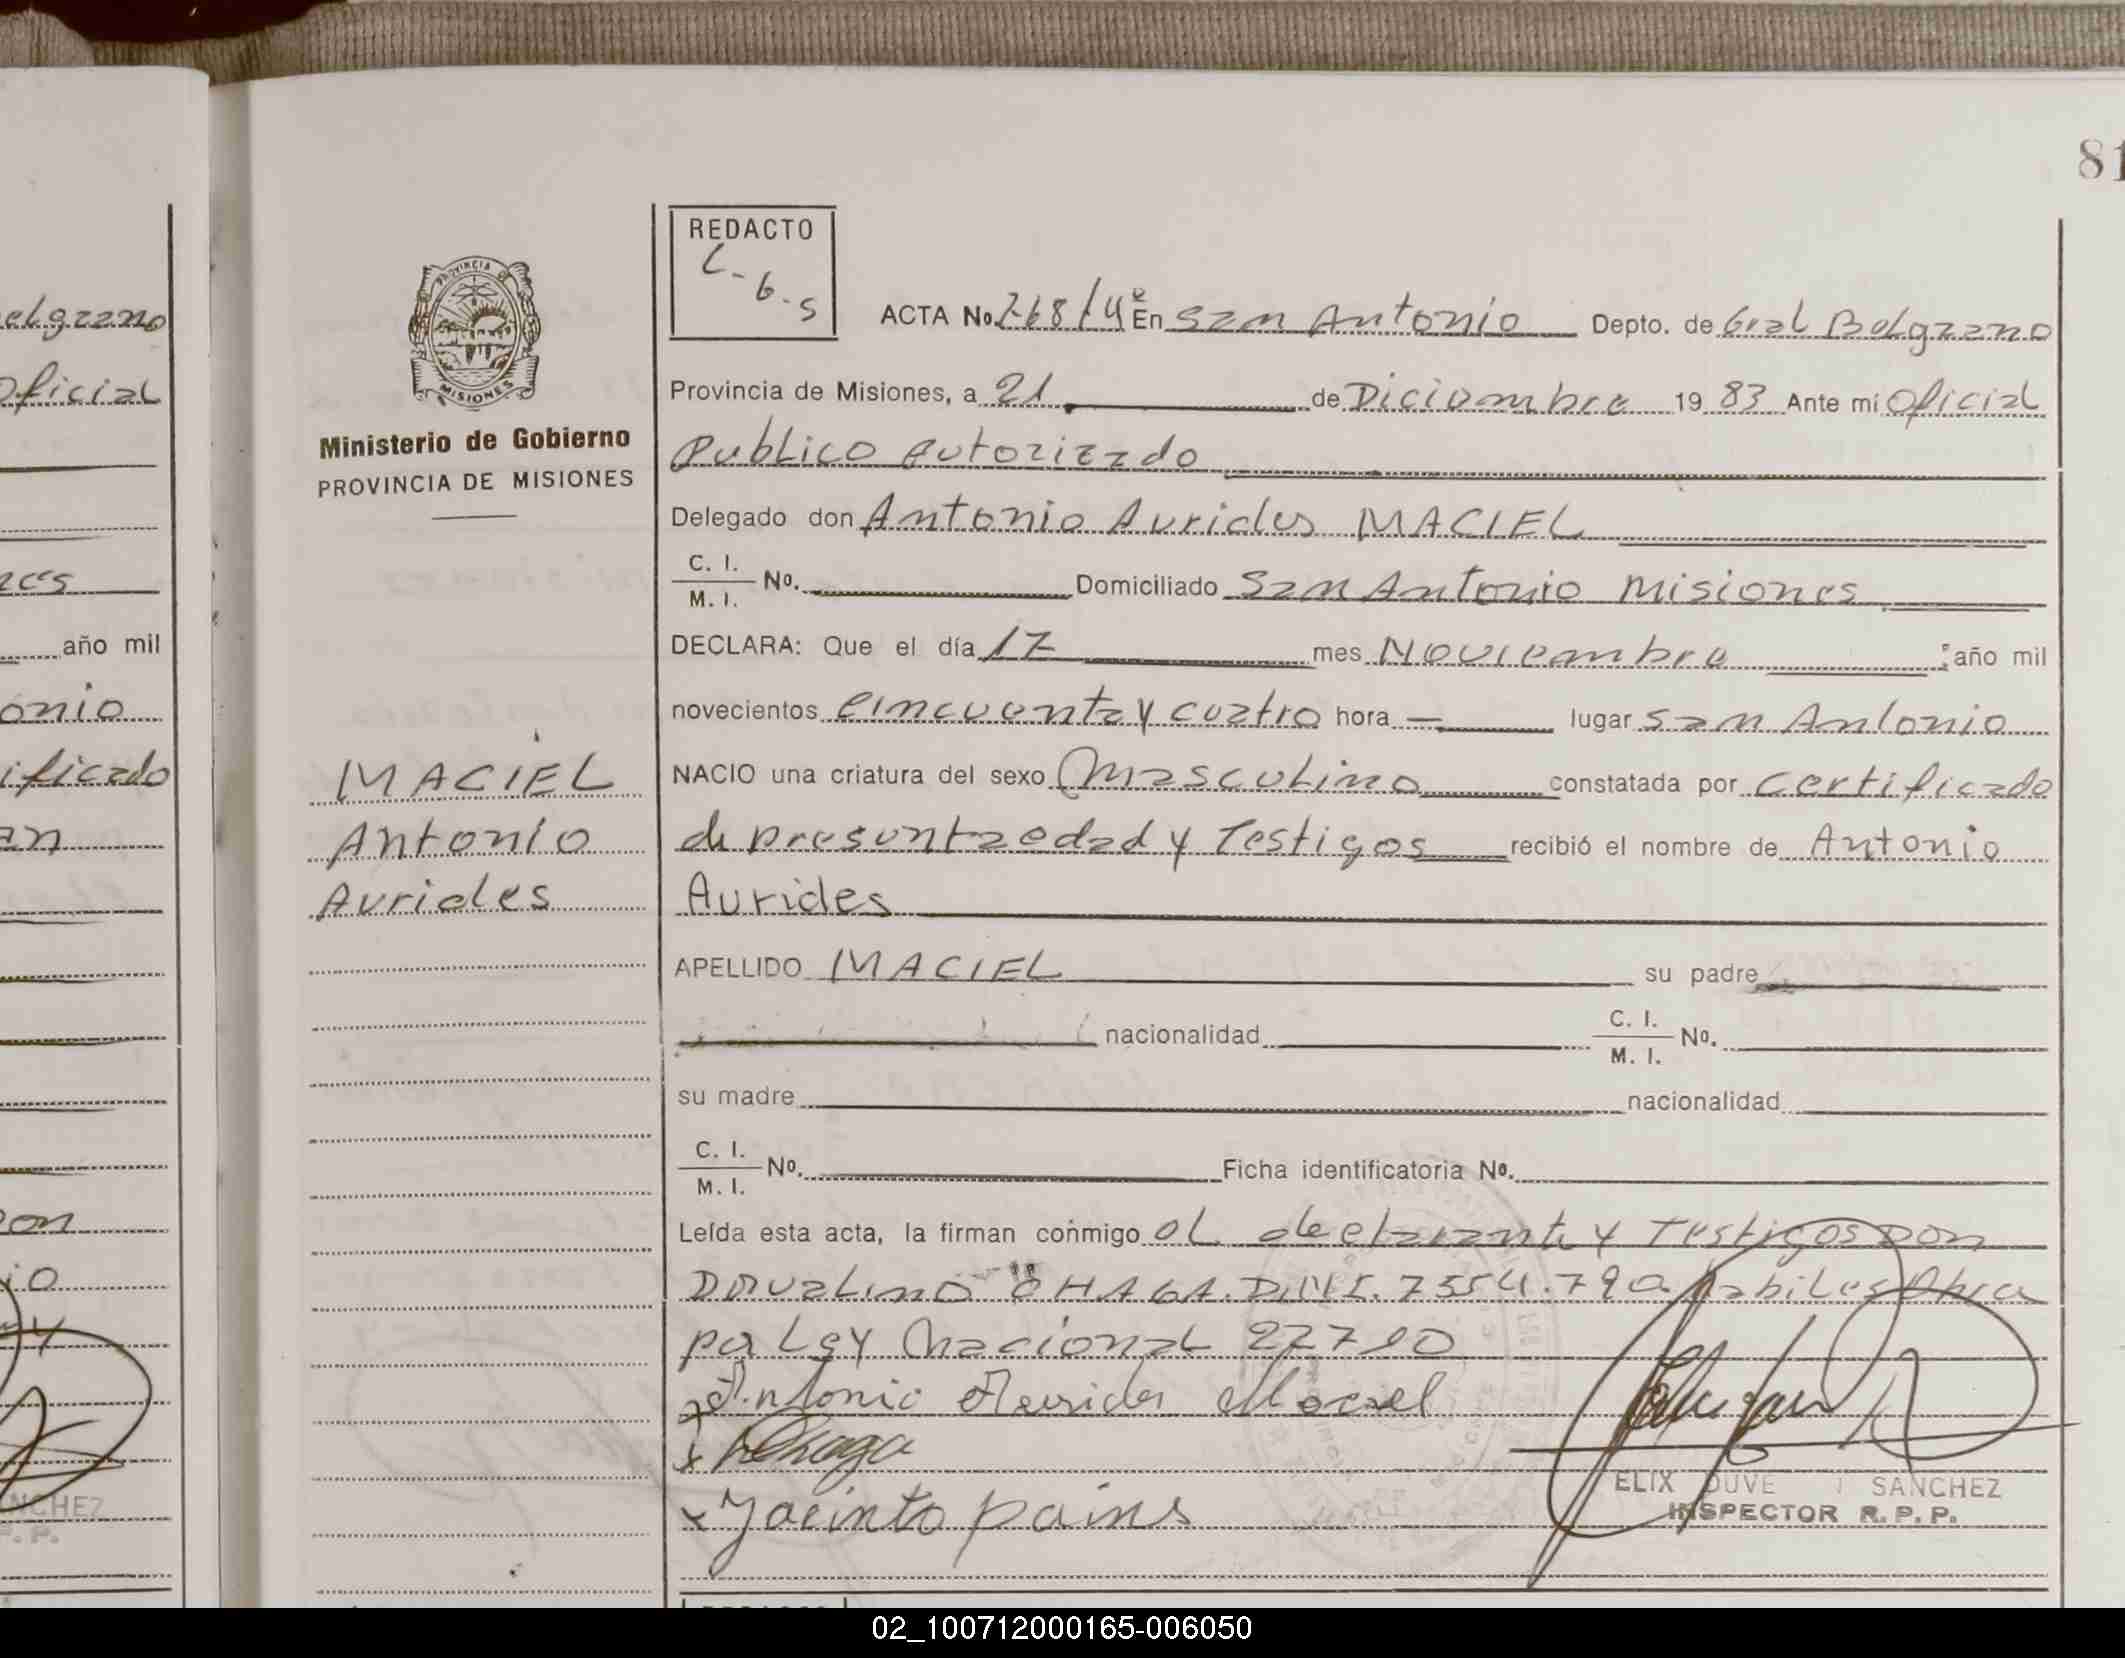 81
REDACTO
L-6-S
PROVINCIA DE
MISIONES
ACTA No. 268/4º En San Antonio Depto. de Gral Belgrano
Provincia de Misiones, a 21 de Diciembre 1983 Ante mi Oficial
Publico Autorizado
Ministerio de Gobierno
PROVINCIA DE MISIONES
Delegado don Antonio Aurides MACIEL
C. I.
M. I. No. Domiciliado San Antonio Misiones
DECLARA: Que el día 17 mes Noviembre año mil
novecientos cincuenta y cuatro hora — lugar San Antonio
NACIO una criatura del sexo Masculino constatada por certificado
de presunta edad y Testigos recibió el nombre de Antonio
Aurides
MACIEL
Antonio
Aurides
APELLIDO MACIEL su padre
nacionalidad C. I.
M. I. No.
su madre nacionalidad
C. I.
M. I. No. Ficha identificatoria No.
Leída esta acta, la firman conmigo el declarante y Testigos Don
CHAGA. 7554.790 habiles
por Ley Nacional 22710
Antonio Aurides Maciel
Chaga
Jacinto pains
ELIX DUVE SANCHEZ
INSPECTOR R. P. P.
elgrano
Oficial
año mil
onio
ificado
an
on
io
y
NCHEZ
P. P.
02_100712000165-006050